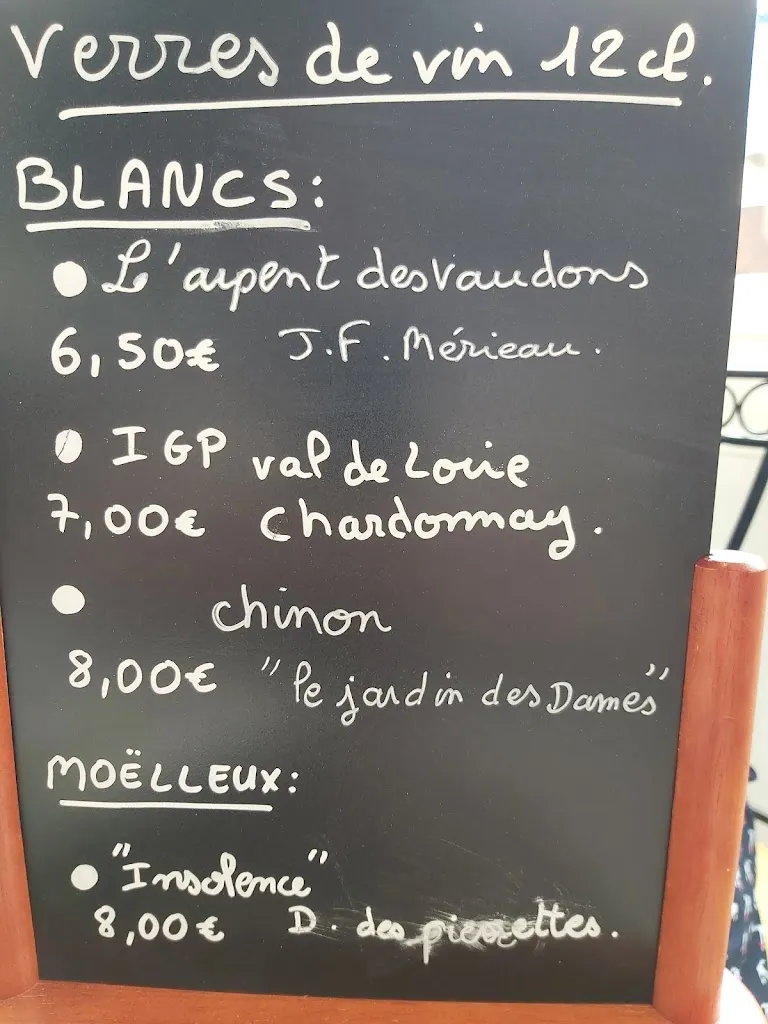 Verres de vin 12cl.
BLANCS:
L'arpent des Vaudons
6,50€ J.F. Mérieau.
IGP val de Loire
7,00€ Chardonnay.
chinon
8,00€ "le jardin des Dames"
MOËLLEUX:
"Insolence"
8,00€ D. des pierrettes.